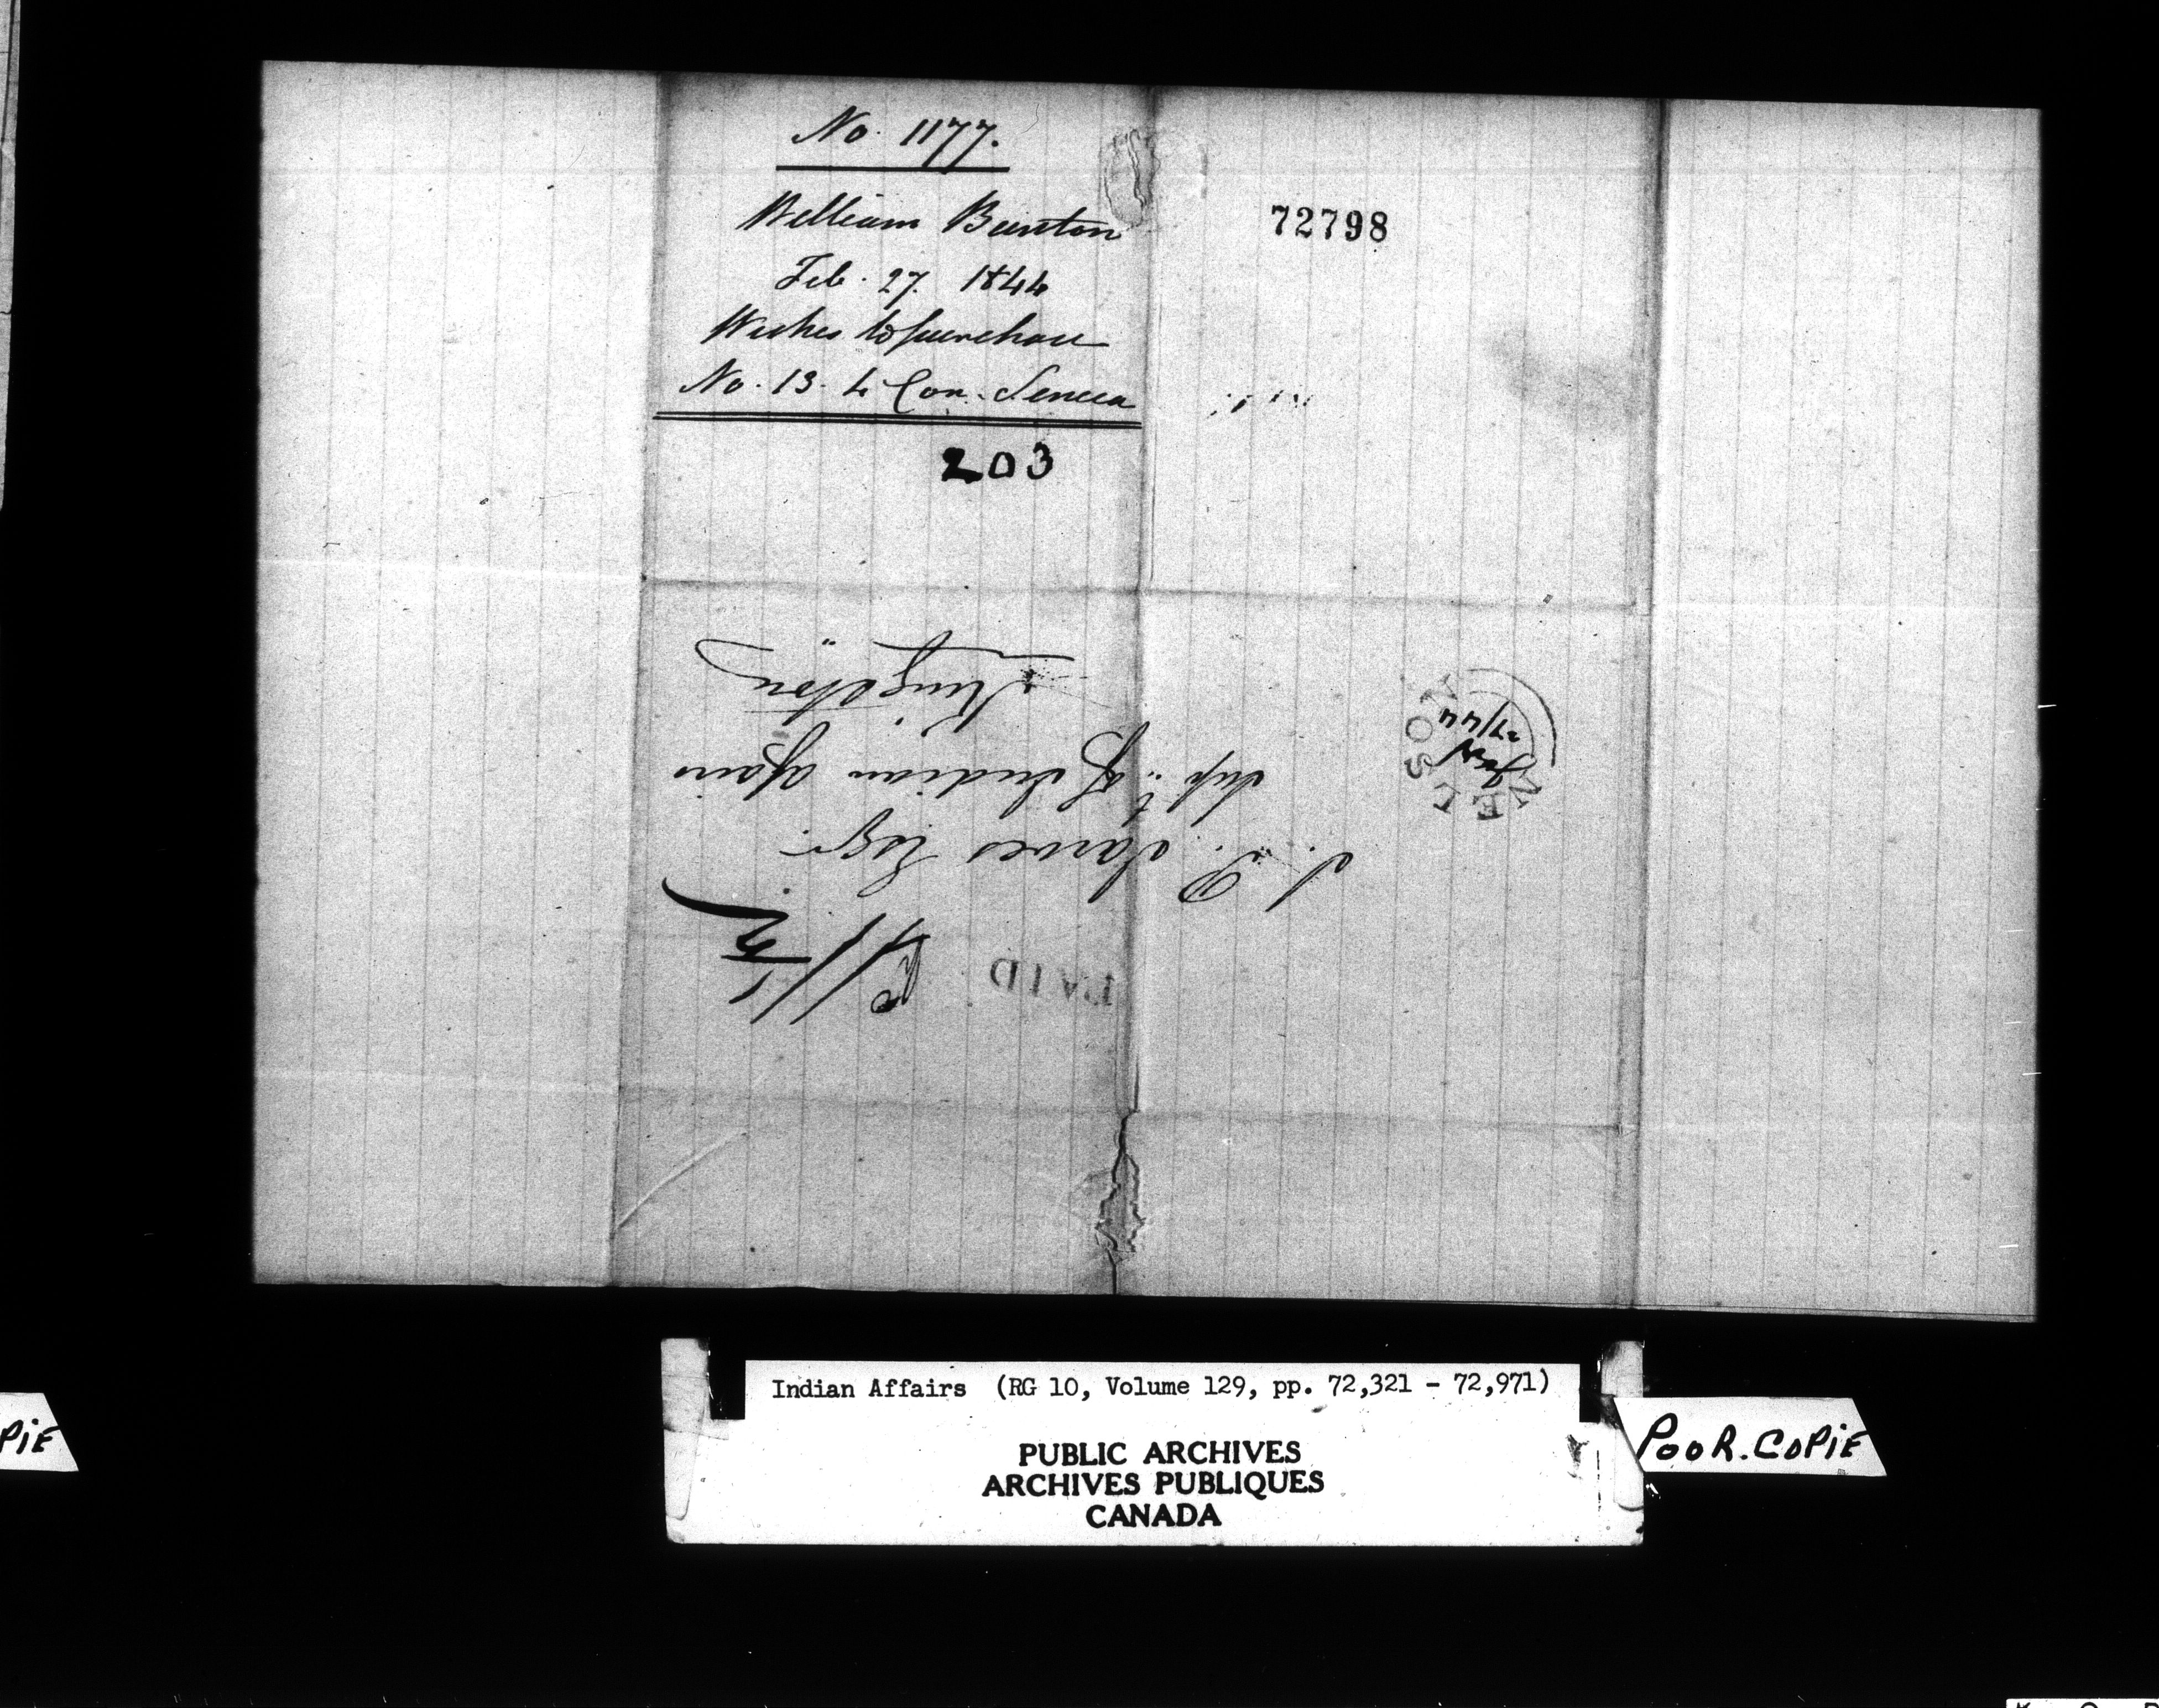 No. 1177.
William Bunton
Feb. 27. 1844
Wishes to purchase
No. 13. 4 Con. Seneca
203
72798
PAID
S. P. Jarves Esqr.
Supt. of Indian Affairs
Kingston
NELSON
Feby
27/44
Indian Affairs (RG 10, Volume 129, pp. 72,321 - 72,971)
PUBLIC ARCHIVES
ARCHIVES PUBLIQUES
CANADA
POOR.COPiE
PiE